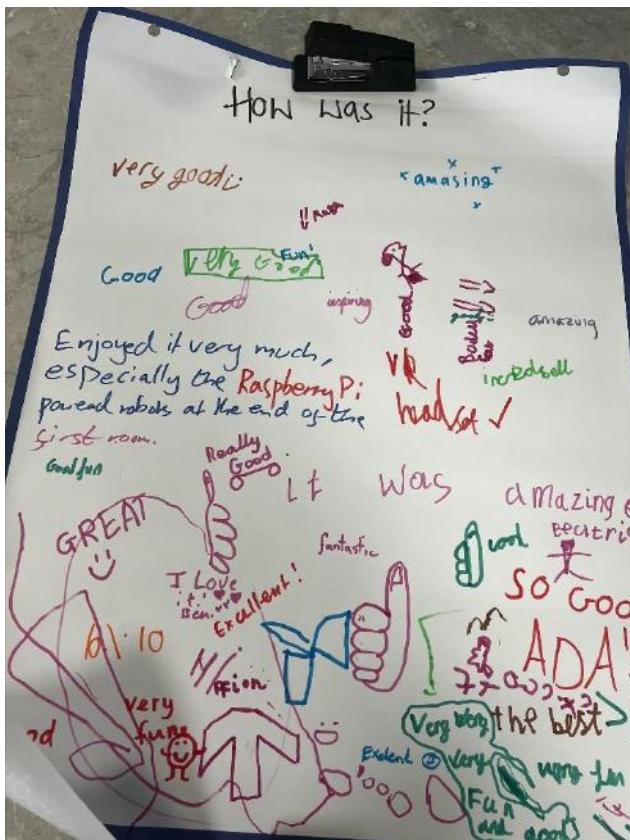 How was it?
very good
amasing
Good
very Good
Fun!
Good
inspiring
Good
amazing
incredsell
Enjoyed it very much,
especially the Raspberry Pi
powered robots at the end of the
first room.
VR
headset ✓
Good fun
Really
Good
It was amazing
GREAT
fantastic
cool
Beatri
I Love
it!
Ben
Excellent!
SO GOO
ADA'
ffion
very
fun
the best
Exelent
Very Very
very
very fun
Fun
and
good